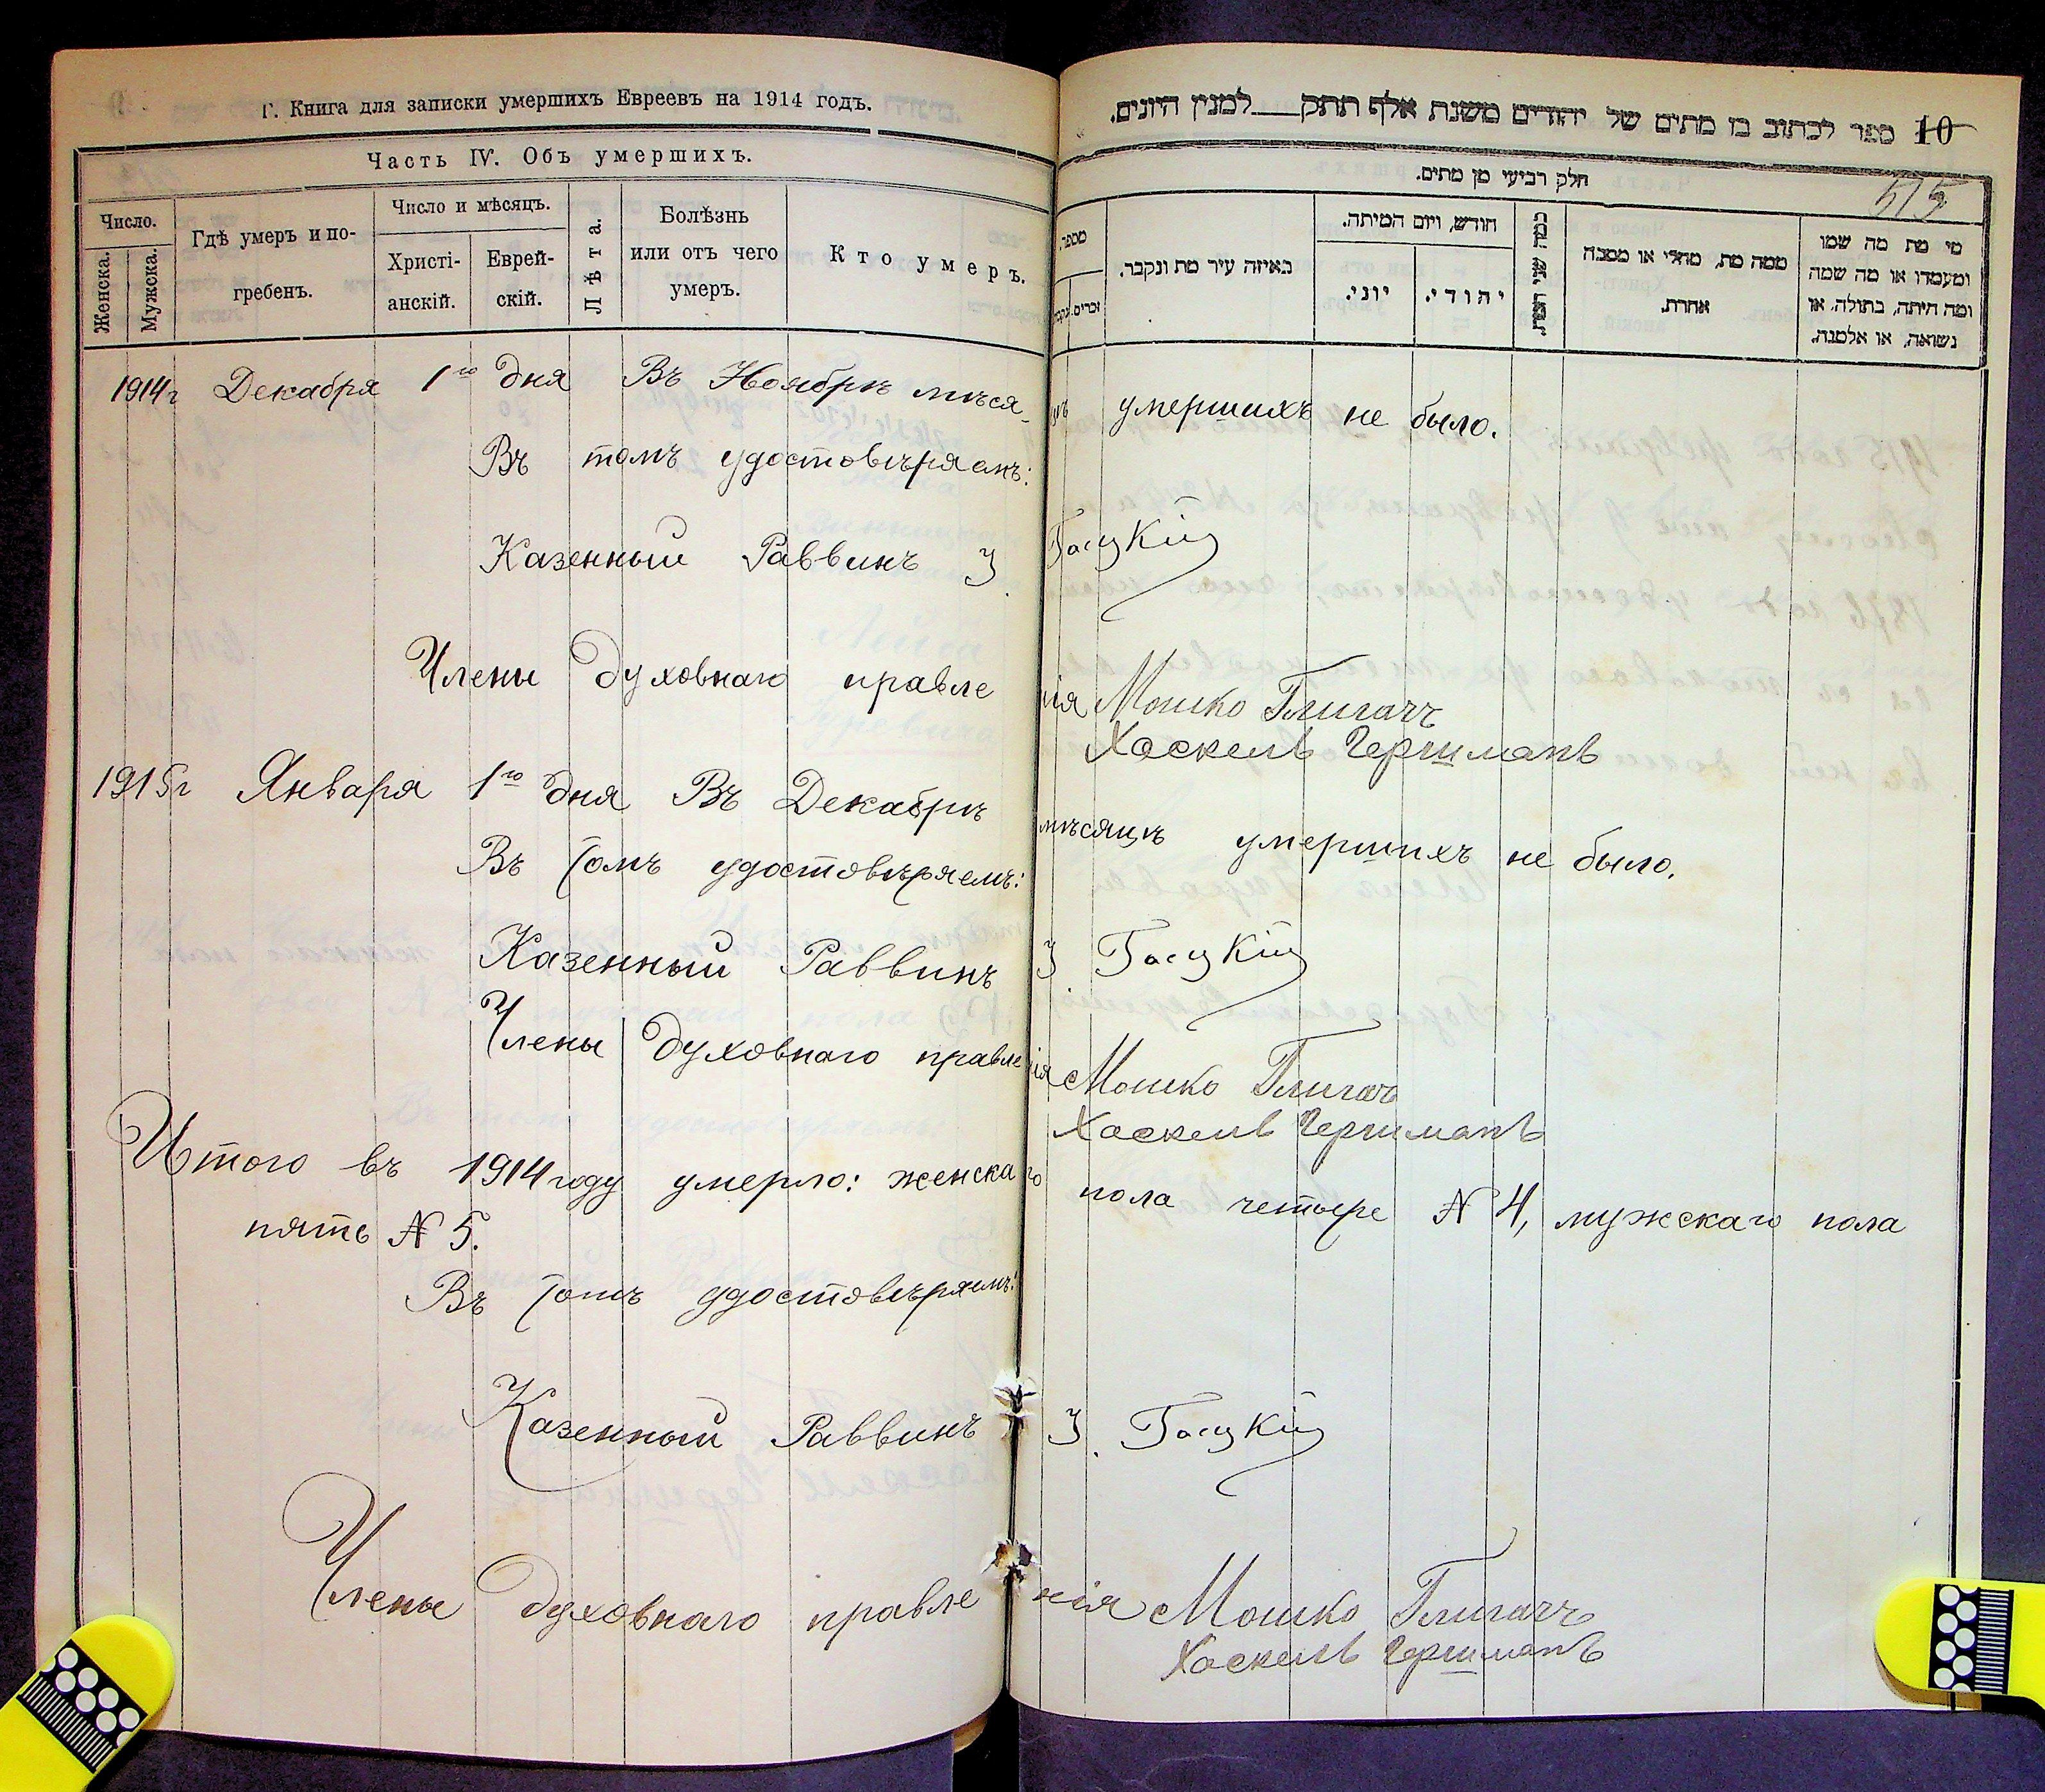 Г. Книга для записки умершихъ Евреевъ на 1914 годъ.
Часть IV. Объ умершихъ.
Число.
Женска.
Мужска.
Гдѣ умеръ и по-
гребенъ.
Число и мѣсяцъ.
Христі-
анскій.
Еврей-
скій.
Лѣта.
Болѣзнь
или отъ чего
умеръ.
Кто умеръ.
ספר לכתוב בו מתים של יהודים משנת אלף תתק למנין היונים.
10
חלק רביעי מן מתים.
515
מספר.
זכרים.
באיזה עיר מת ונקבר.
חודש, ויום המיתה.
יוני.
יהודי.
ממה מת, מחלי או מסבה
אחרת.
מי מת מה שמו
ומעמדו או מה שמה
ומה היתה, בתולה, או
נשואה, או אלמנה.
1914 г Декабря 1го дня Въ Ноябрѣ мѣся-цѣ умершихъ не было.
Въ томъ удостовѣряемъ:
Казенный Раввинъ З.
Члены духовнаго правленія Мошко Глигачъ
Хаскель Гершманъ
1915 г Января 1го дня Въ Декабрѣ мѣсяцѣ умершихъ не было.
Въ томъ удостовѣряемъ:
Казенный Раввинъ З.
Члены духовнаго правленія Мошко Глигачъ
Хаскель Гершманъ
Итого въ 1914 году умерло: женскаго пола четыре № 4, мужскаго пола
пять № 5.
Въ томъ удостовѣряемъ:
Казенный Раввинъ З.
Члены духовнаго правленія Мошко Глигачъ
Хаскель Гершманъ